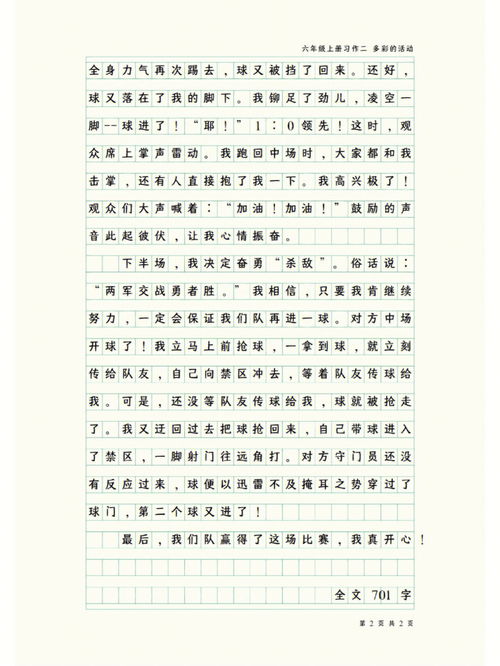 六年级上册习作二 多彩的活动
全身力气再次踢去，球又被挡了回来。还好，
球又落在了我的脚下。我铆足了劲儿，凌空一
脚--球进了！“耶！”1：0领先！这时，观
众席上掌声雷动。我跑回中场时，大家都和我
击掌，还有人直接抱了我一下。我高兴极了！
观众们大声喊着：“加油！加油！”鼓励的声
音此起彼伏，让我心情振奋。
下半场，我决定奋勇“杀敌”。俗话说：
“两军交战勇者胜。”我相信，只要我肯继续
努力，一定会保证我们队再进一球。对方中场
开球了！我立马上前抢球，一拿到球，就立刻
传给队友，自己向禁区冲去，等着队友传球给
我。可是，还没等队友传球给我，球就被抢走
了。我又迂回过去把球抢回来，自己带球进入
了禁区，一脚射门往远角打。对方守门员还没
有反应过来，球便以迅雷不及掩耳之势穿过了
球门，第二个球又进了！
最后，我们队赢得了这场比赛，我真开心！
全文 701 字
第 2 页 共 2 页